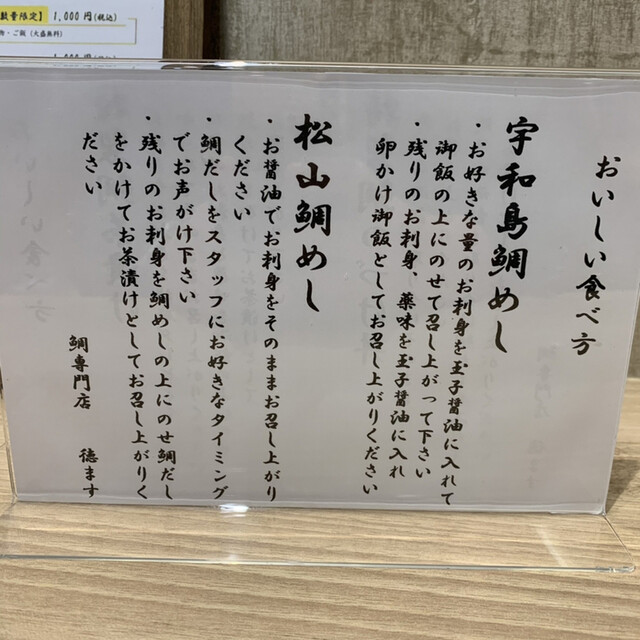 数量限定】 1,000円(税込)
物・ご飯(大盛無料)
おいしい食べ方
宇和島鯛めし
・お好きな量のお刺身を玉子醤油に入れて
御飯の上にのせて召し上がって下さい
・残りのお刺身、薬味を玉子醤油に入れ
卵かけ御飯としてお召し上がりください
松山鯛めし
・お醤油でお刺身をそのままお召し上がり
ください
・鯛だしをスタッフにお好きなタイミング
でお声がけ下さい
・残りのお刺身を鯛めしの上にのせ鯛だし
をかけてお茶漬けとしてお召し上がりく
ださい
鯛専門店 徳ます